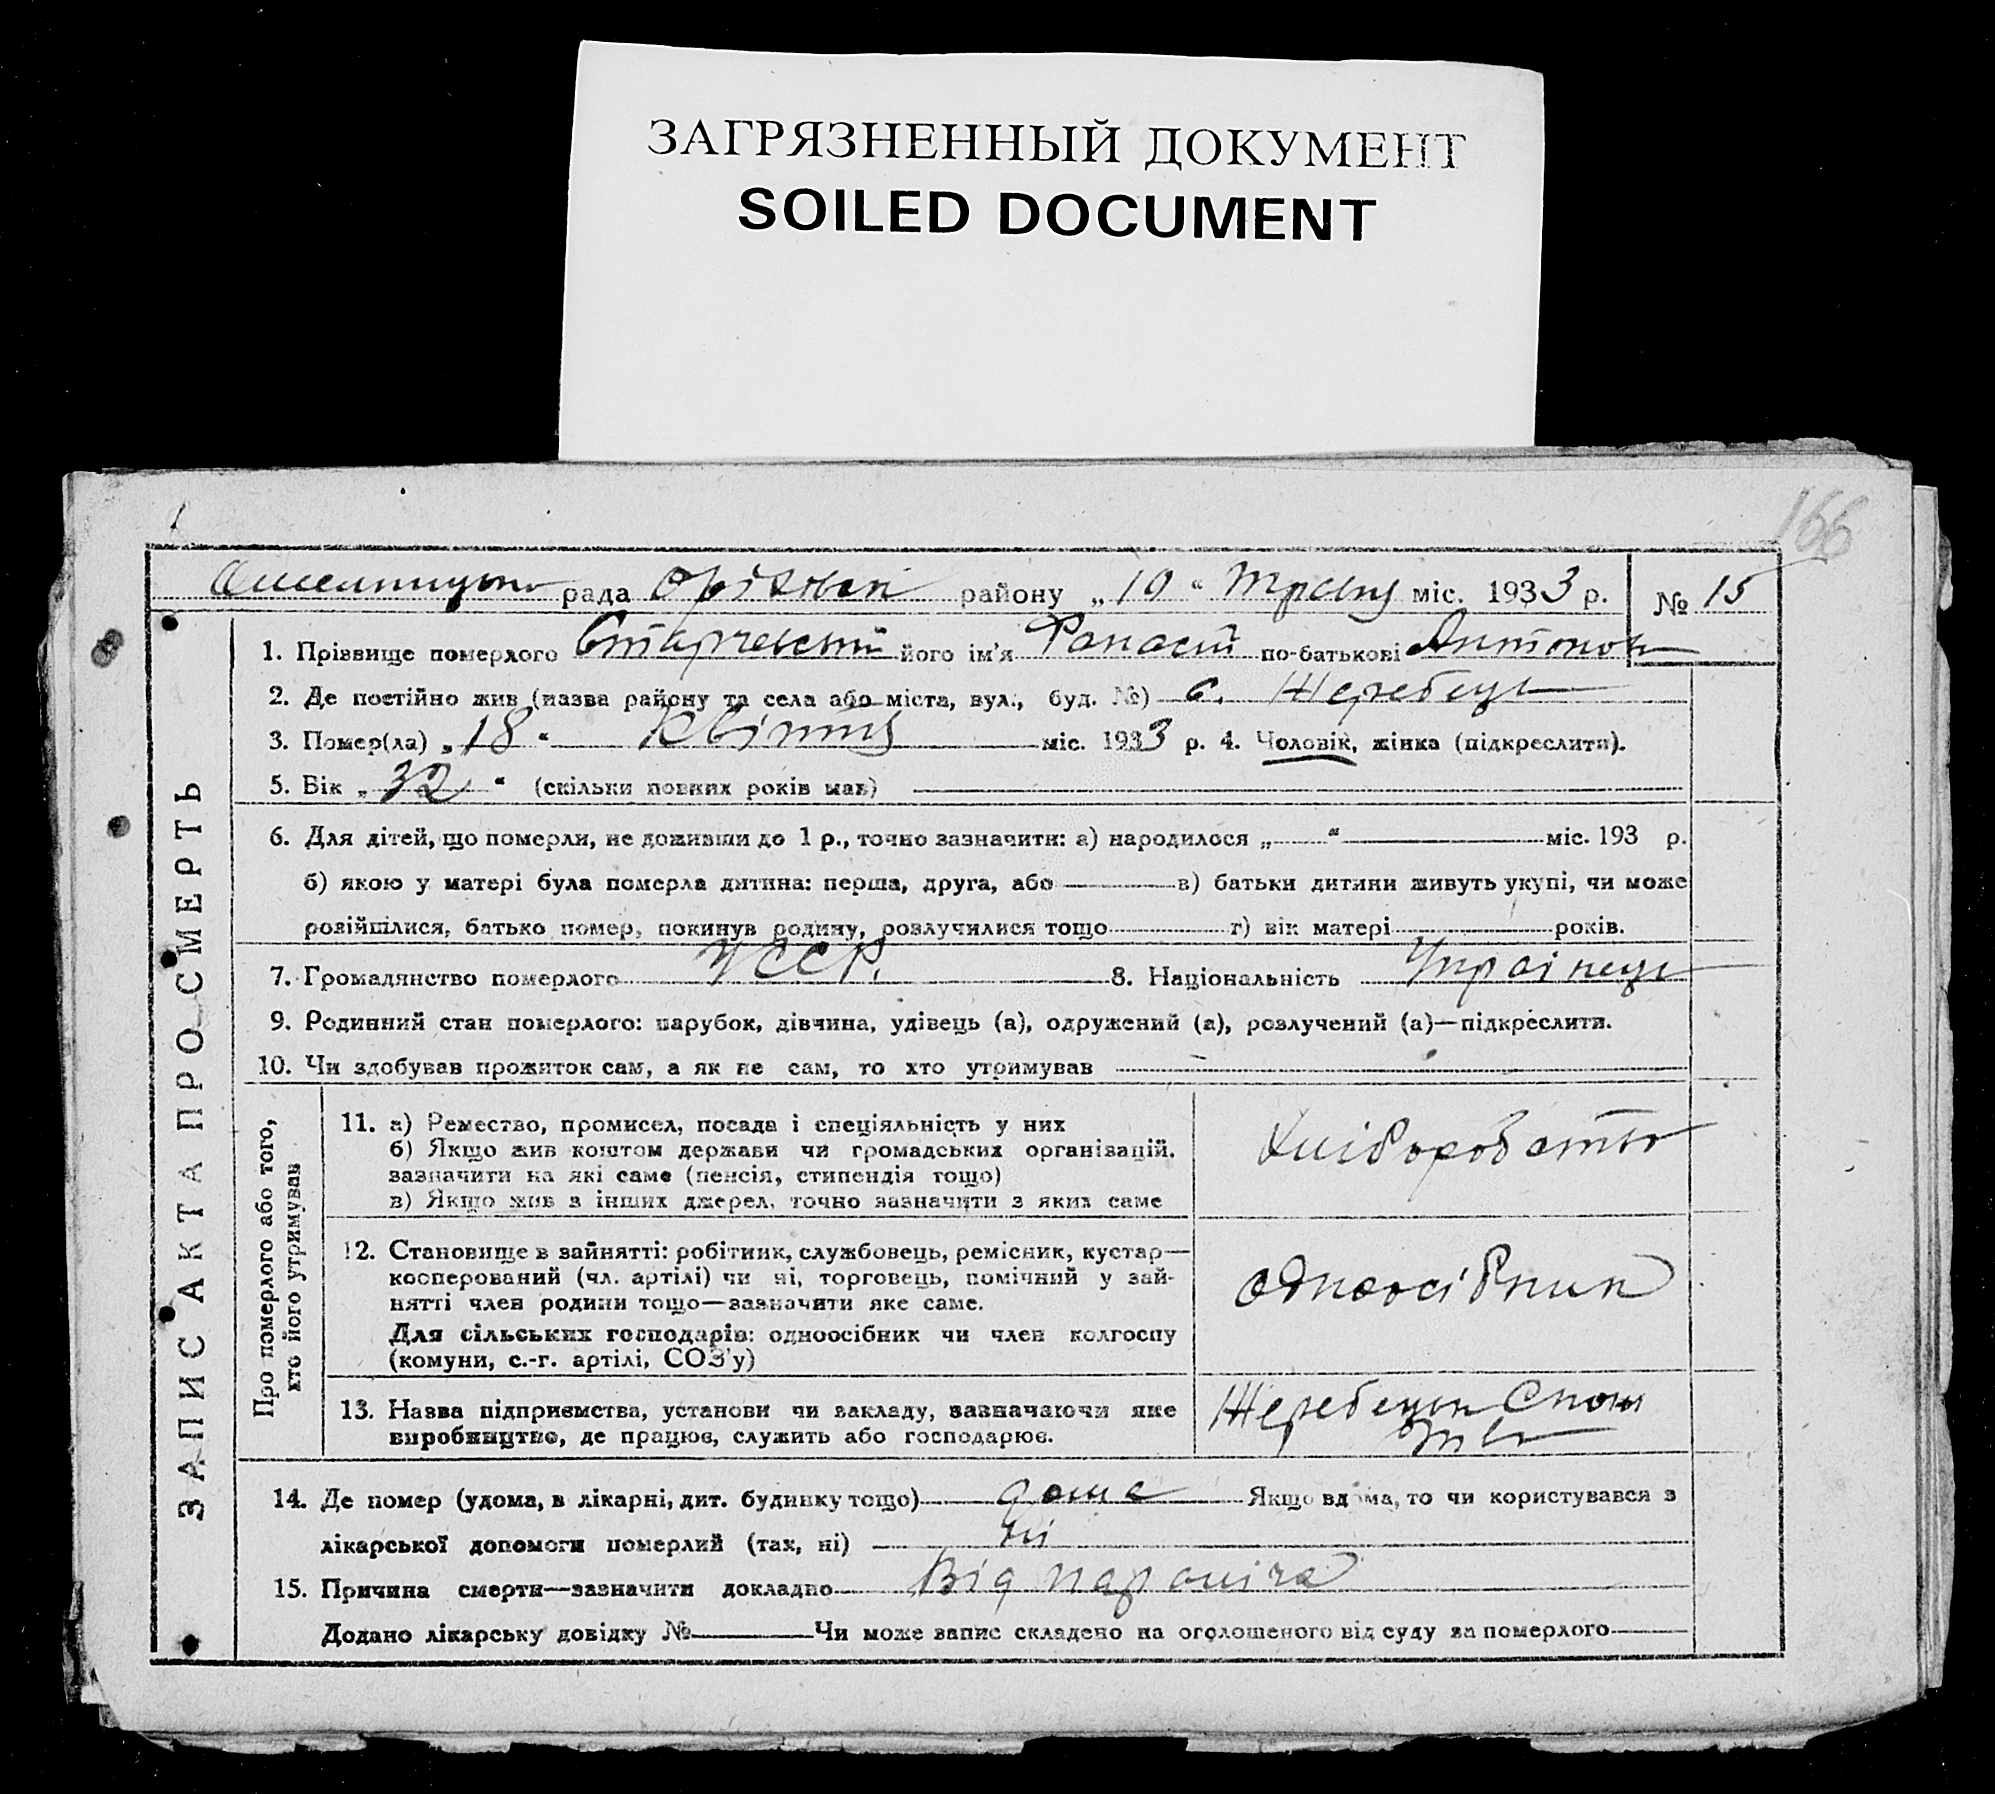 ЗАГРЯЗНЕННЫЙ ДОКУМЕНТ
SOILED DOCUMENT
166
рада району „10“ Травня міс. 1933 р. № 15
ЗАПИС АКТА ПРО СМЕРТЬ
1. Прізвище померлого його ім'я Панасій по-батькові Антонов
2. Де постійно жив (назва району та села або міста, вул., буд. №) с. Жеребець
3. Помер(ла) „18“ Квітня міс. 1933 р. 4. Чоловік, жінка (підкреслити).
5. Вік „32“ (скільки повних років мав)
6. Для дітей, що померли, не доживши до 1 р., точно зазначити: а) народилося „ “ міс. 193 р.
б) якою у матері була померла дитина: перша, друга, або в) батьки дитини живуть укупі, чи може
розійшлися, батько помер, покинув родину, розлучилися тощо г) вік матері років.
7. Громадянство померлого УССР. 8. Національність Українець
9. Родинний стан померлого: парубок, дівчина, удівець (а), одружений (а), розлучений (а)—підкреслити.
10. Чи здобував прожиток сам, а як не сам, то хто утримував
Про померлого або того,
хто його утримував
11. а) Ремество, промисел, посада і спеціяльність у них
б) Якщо жив коштом держави чи громадських організацій,
зазначити на які саме (пенсія, стипендія тощо)
в) Якщо жив з інших джерел, точно зазначити з яких саме
Хліборобство
12. Становище в зайнятті: робітник, службовець, ремісник, кустар—
кооперований (чл. артілі) чи ні, торговець, помічний у зай-
нятті член родини тощо—зазначити яке саме.
Для сільських господарів: одноосібник чи член колгоспу
(комуни, с.-г. артілі, СОЗ'у)
одноосібник
13. Назва підприємства, установи чи закладу, зазначаючи яке
виробництво, де працює, служить або господарює.
14. Де помер (удома, в лікарні, дит. будинку тощо) дома Якщо вдома, то чи користувався з
лікарської допомоги померлий (так, ні) ні
15. Причина смерти—зазначити докладно Від параліча
Додано лікарську довідку № Чи може запис складено на оголошеного від суду за померлого